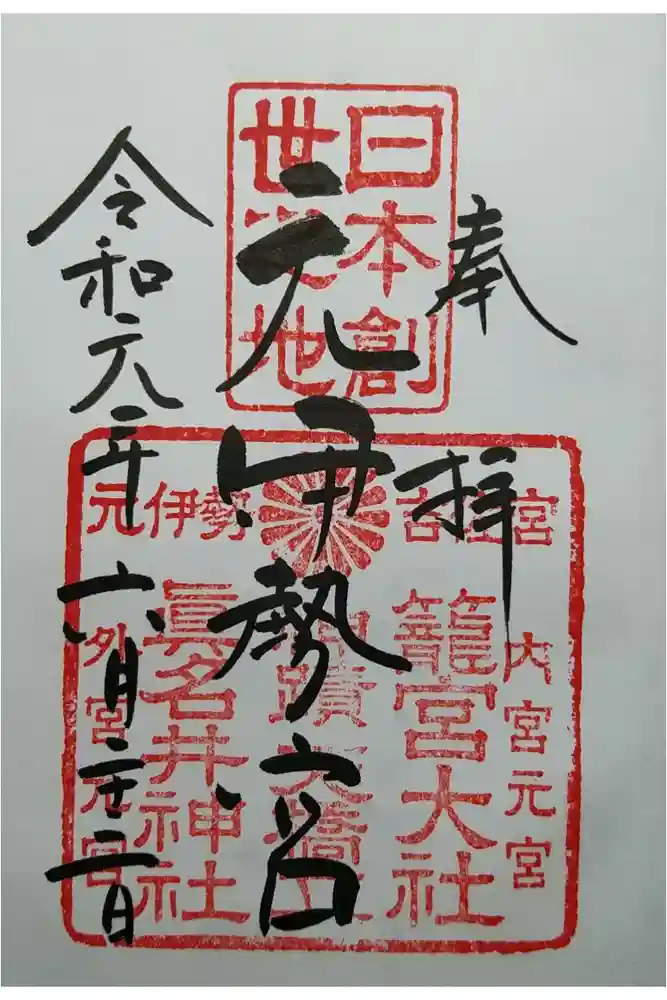 奉拝
元伊勢宮
令和元年六月二十二日
日本創
世地
元伊勢
宮
内宮元宮
籠宮大社
蹟天橋立
眞名井神社
外宮元宮